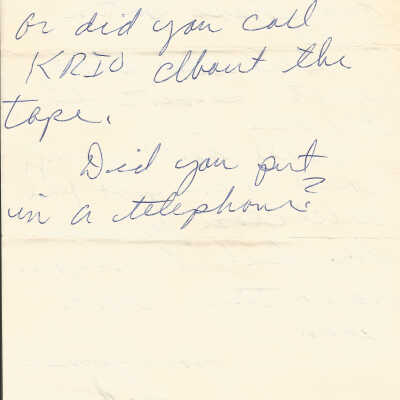 or did you call
KRIO about the
tape.
Did you put
in a telephone?